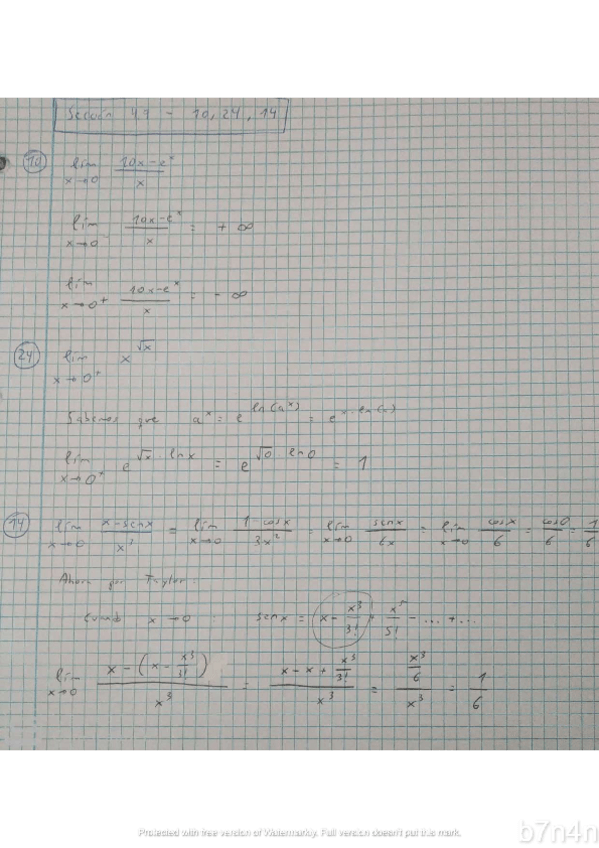 Sección 4.7 - 10, 24, 14
10 lim x→0 10x-e^x / x
lim x→0⁻ 10x-e^x / x = + ∞
lim x→0⁺ 10x-e^x / x = - ∞
24 lim x→0⁺ x^√x
Sabemos que a^x = e^ln(a^x) = e^x·ln(a)
lim x→0⁺ e^√x·lnx = e^√0·ln0 = 1
14 lim x→0 x-senx / x³ = lim x→0 1-cosx / 3x² = lim x→0 senx / 6x = lim x→0 cosx / 6 = cos0 / 6 = 1/6
Ahora por Taylor:
Cuando x→0 : senx = x - x³/3! + x⁵/5! - ... + ...
lim x→0 x-(x-x³/3!) / x³ = x-x+x³/3! / x³ = x³/6 / x³ = 1/6
Protected with free version of Watermarkly. Full version doesn't put this mark.
b7n4n